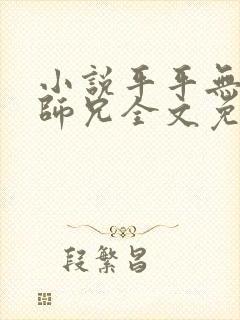 小説平平無
師兄全文免
段繁昌